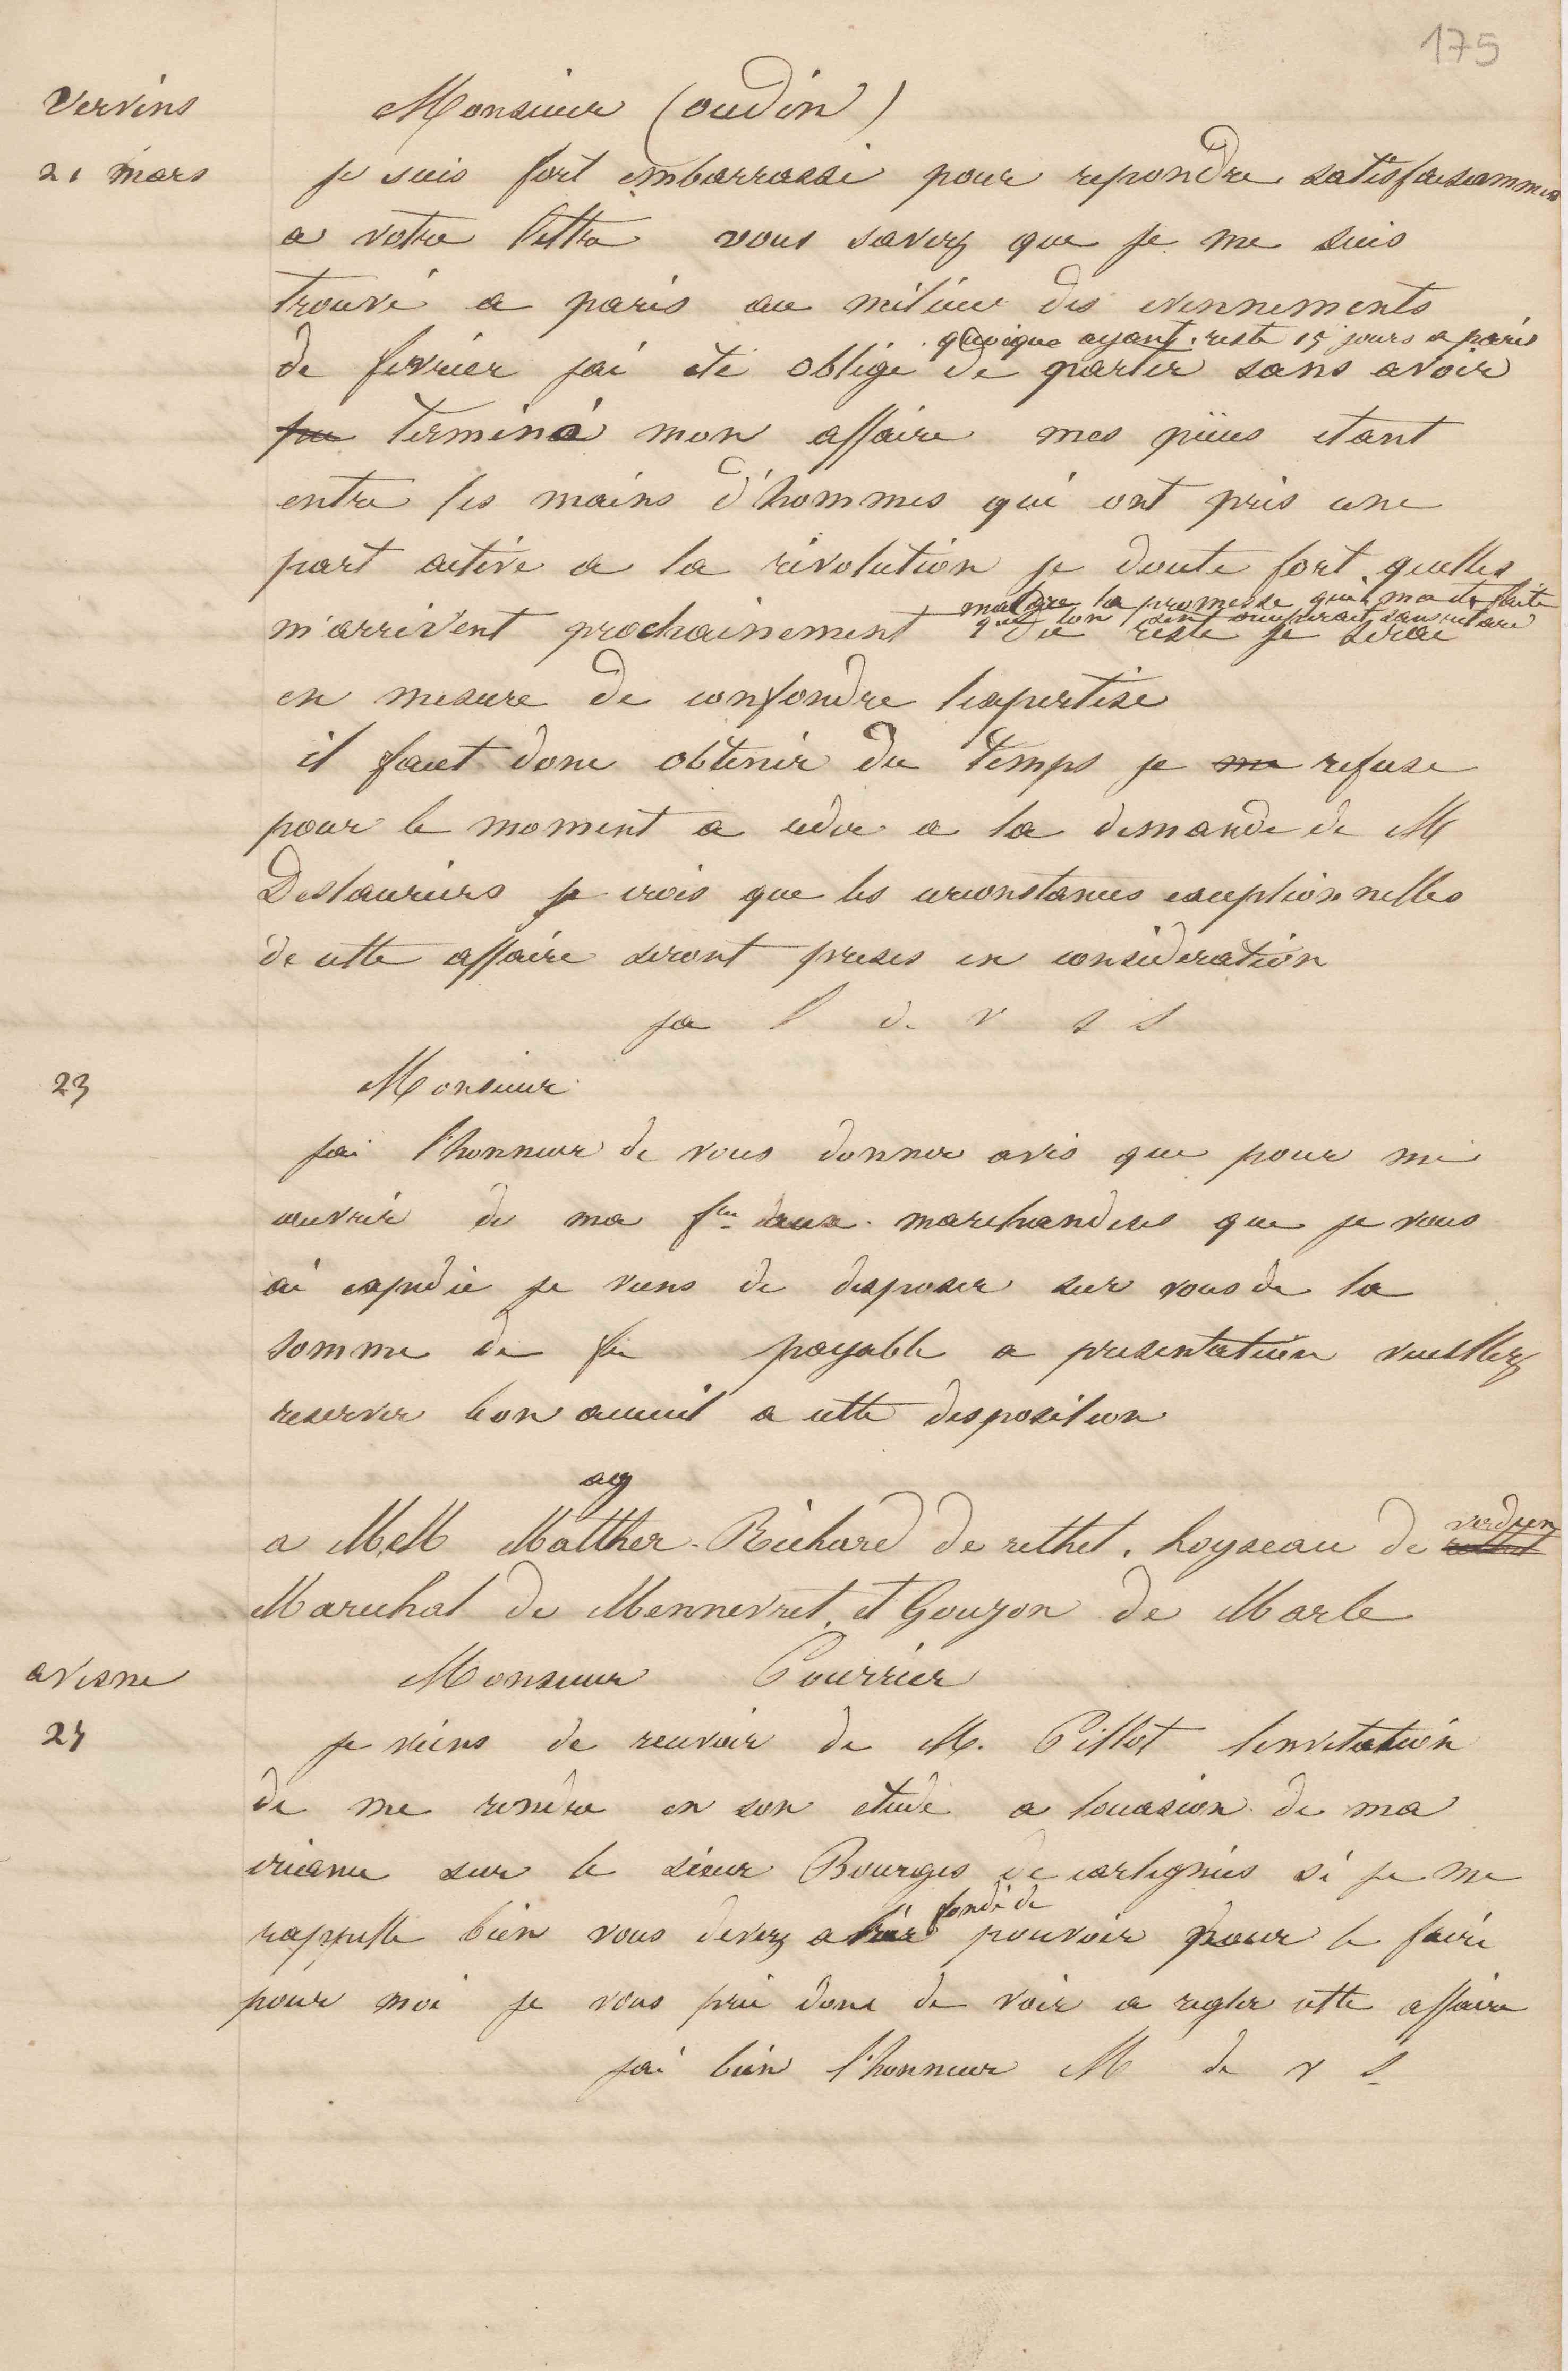 175
Vervins
Monsieur (oudin)
21 mars
je suis fort embarrassé pour repondre satisfaisamment
a votre lettre vous savez que je me suis
trouvé a paris au milieu des evennements
quoique ayant resté 15 jours a paris
de fevrier jai été obligé de partir sans avoir
pu terminé mon affaire mes pieces etant
entre les mains d'hommes qui ont pris une
part active a la révolution je doute fort quelles
malgre la promesse qui ma ete faite
que lon sent occuperait sans retard
m'arrivent prochainement du reste je serai
en mesure de confondre lexpertise
il faut donc obtenir du temps je me refuse
pour le moment a ceder a la demande de M
Deslauriers je crois que les circonstances exceptionnelles
de cette affaire seront prises en consideration
ja l d. v s s
23
Monsieur
jai l'honneur de vous donner avis que pour me
couvrir de ma fre aux marchandises que je vous
ai expedié je viens de disposer sur vous de la
somme de fr payable a presentation veuillez
reserver bon accueil a cette disposition
ag
a MM Matther. Richard de rethel. Loyseau de rethel
verdun
Marechal de Mennevret, et Gouzon de Marle
avesne
Monsieur Courrier
24
je viens de recevoir de M. Pillot linvitation
de me rendre en son etude a loccasion de ma
creance sur le sieur Bourges de cartignies si je me
fondé de
rappelle bien vous devez avoir pouvoir pour le faire
pour moi je vous prie donc de voir a regler cette affaire
jai bien l'honneur M de v s